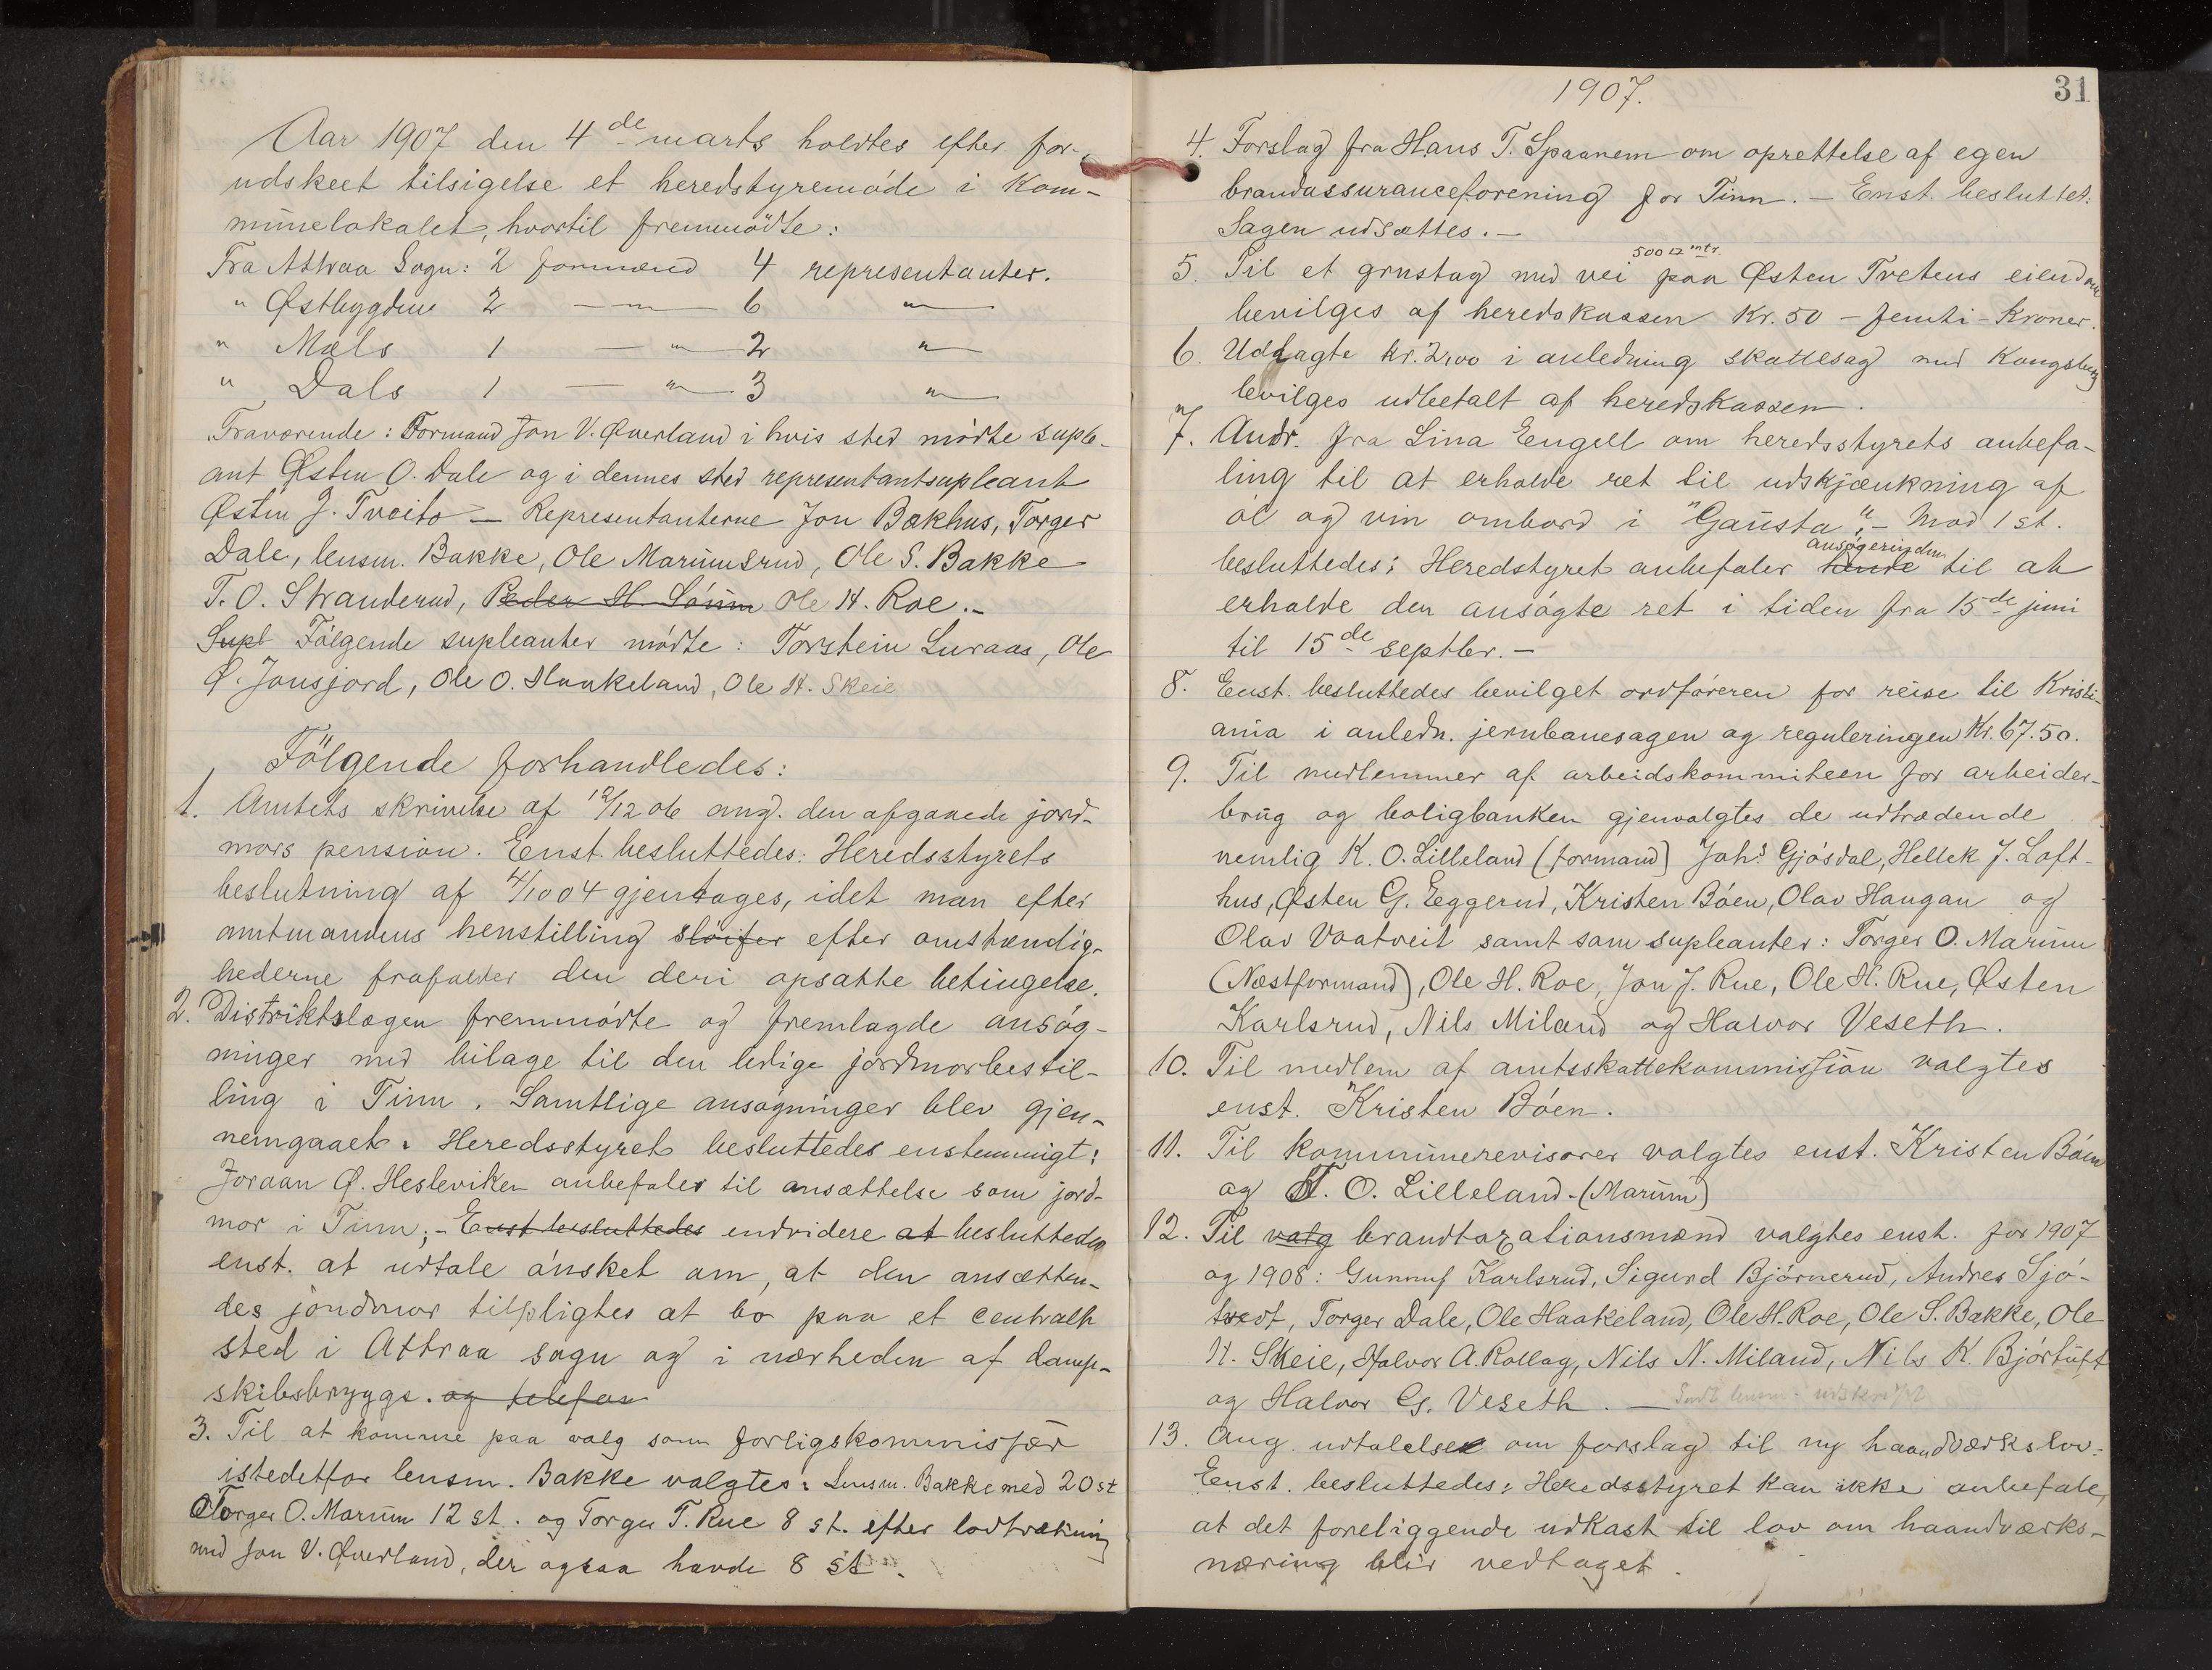 Aar 1907 den 4de marts holdtes efter for-
udskeet tilsigelse et heredstyremøde i Kom-
munelokalet, hvortil fremmødte:
Fra Attraa Sogn: 2 formænd 4 representanter.
" Østbygdens 2 — " — 6 "
" Mæls 1 — " — 2 "
" Dals 1 — " — 3 "
Fraværende: Formand Jon V. Øverland i hvis sted mødte suple-
ant Østen O. Dale og i dennes sted representantsupleant
Østen J. Tveito — Representanterne Jon Bakhus, Torger
Dale, lensm. Bakke, Ole Marumsrud, Ole S. Bakke
T. O. Stranderud, Peder H. Sørum Ole H. Roe.-
Supl Følgende supleanter mødte: Torstein Luraas, Ole
Ø. Jonsjord, Ole O. Haakeland, Ole H. Skeie
Følgende forhandledes:
1. Amtets skrivelse af 12/12 06 ang. den afgaaede jord-
mors pension. Enst. besluttedes: Heredsstyrets
beslutning af 4/10 04 gjentages, idet man efter
amtmandens henstilling sløifer efter omstændig-
hederne frafalder den deri opsatte betingelse.
2. Distriktslægen fremmødte og fremlagde ansøg-
ninger med bilage til den ledige jordmorbestil-
ling i Tinn. Samtlige ansøgninger blev gjen-
nemgaaet. Heredsstyret besluttedes enstemmigt:
Joraan Ø. Hesleviken anbefales til ansættelse som jord-
mor i Tinn;- Enst besluttedes endvidere at besluttedes
enst. at udtale ønsket om, at den ansætten-
des jordmor tilpligtes at bo paa et centralt
sted i Attraa sogn og i nærheden af damp-
skibsbrygge. og telefon
3. Til at komme paa valg som forligskommisær
istedetfor lensm. Bakke valgtes: Lensm. Bakke med 20 st
Torger O. Marum 12 st. og Torger T. Rue 8 st. efter lodtrækning
med Jon V. Øverland, der ogsaa havde 8 st.
1907.
31
4. Forslag fra Hans T. Spaanem om oprettelse af egen
brandassuranceforening for Tinn. — Enst. besluttet:
Sagen udsættes.—
500 □ mtr.
5. Til et grustag med vei paa Østen Tvetens eiendom
bevilges af heredskassen Kr. 50 - femti - Kroner.
6. Udlagte kr. 2,00 i anledning skattesag med Kongsberg
bevilges udbetalt af heredskassen.
7. Andr. fra Lina Engell om heredsstyrets anbefa-
ling til at erholde ret til udskjænkning af
øl og vin ombord i "Gausta".- Mod 1 st.
ansøgerinden
besluttedes: Heredstyret anbefaler hende til at
erholde den ansøgte ret i tiden fra 15de juni
til 15de septbr.—
8. Enst. besluttedes bevilget ordføreren for reise til Kristi-
ania i anledn. jernbanesagen og reguleringen Kr. 67.50.
9. Til medlemmer af arbeidskommiteen for arbeider-
brug og boligbanken gjenvalgtes de udtrædende
nemlig K. O. Lilleland (formand) Johs. Gjøsdal, Hellek J. Loft-
hus, Østen G. Eggerud, Kristen Bøen, Olav Haugan og
Olav Vaatveit samt som supleanter: Torger O. Marum
(Næstformand), Ole H. Roe, Jon J. Rue, Ole H. Rue, Østen
Karlsrud, Nils Miland og Halvor Veseth.
10. Til medlem af amtsskattekommission valgtes
enst. Kristen Bøen.
11. Til kommunerevisorer valgtes enst. Kristen Bøen
og T. O. Lilleland - (Marum)
12. Til valg brandtaxationsmænd valgtes enst. for 1907
og 1908: Gunnuf Karlsrud, Sigurd Bjørnerud, Andres Sjø-
tvedt, Torger Dale, Ole Haakeland, Ole H. Roe, Ole S. Bakke, Ole
H. Skeie, Halvor A. Rollag, Nils N. Miland, Nils K. Bjørtuft
og Halvor G. Veseth. — Sendt lensm. udskrift
13. Ang. udtalelse om forslag til ny haandværkslov.
Enst. besluttedes: Heredsstyret kan ikke anbefale,
at det foreliggende udkast til lov om haandværks-
næring blir vedtaget.